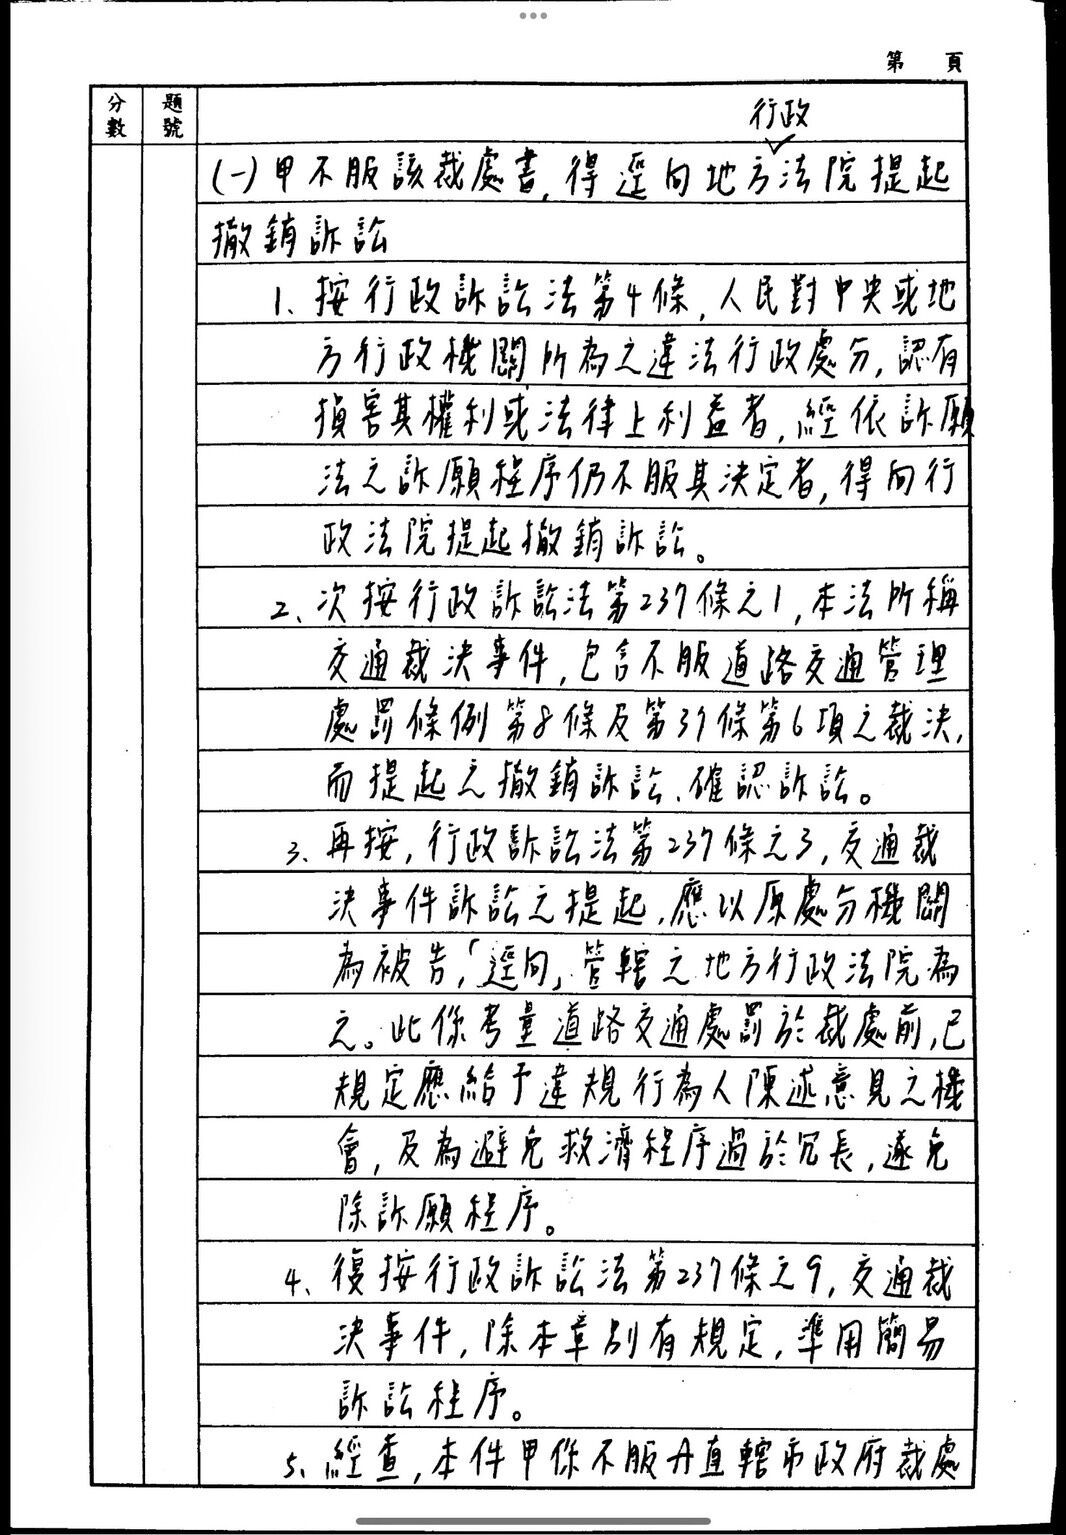 第 頁
分數
題號
行政
(一)甲不服該裁處書,得逕向地方法院提起
撤銷訴訟
1、按行政訴訟法第4條,人民對中央或地
方行政機關所為之違法行政處分,認有
損害其權利或法律上利益者,經依訴願
法之訴願程序仍不服其決定者,得向行
政法院提起撤銷訴訟。
2、次按行政訴訟法第237條之1,本法所稱
交通裁決事件,包含不服道路交通管理
處罰條例第8條及第37條第6項之裁決,
而提起之撤銷訴訟、確認訴訟。
3、再按,行政訴訟法第237條之3,交通裁
決事件訴訟之提起,應以原處分機關
為被告,「逕向」管轄之地方行政法院為
之。此係考量道路交通處罰於裁處前,已
規定應給予違規行為人陳述意見之機
會,及為避免救濟程序過於冗長,遂免
除訴願程序。
4、復按行政訴訟法第237條之9,交通裁
決事件,除本章別有規定,準用簡易
訴訟程序。
5、經查,本件甲係不服A直轄市政府裁處